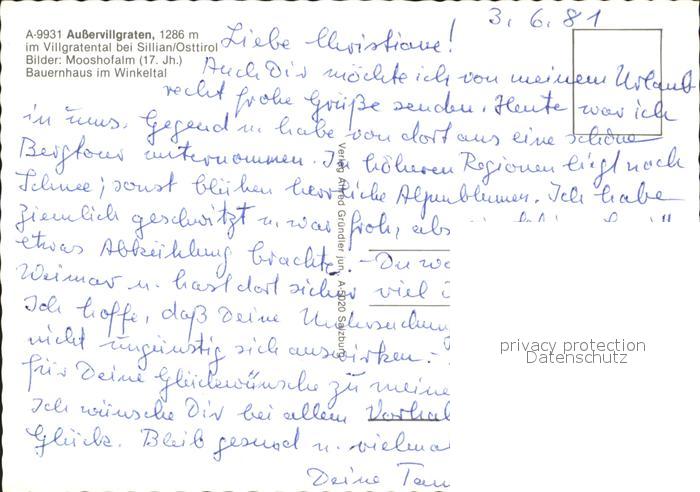 3. 6. 81
A-9931 Außervillgraten, 1286 m
im Villgratental bei Sillian/Osttirol
Bilder: Mooshofalm (17. Jh.)
Bauernhaus im Winkeltal
Liebe Christiane!
Auch Dir möchte ich von meinem Urlaub
recht frohe Grüße senden. Heute war ich
in uns. Gegend u. habe von dort aus eine schöne
Bergtour unternommen. In höheren Regionen liegt noch
Schnee; sonst blühen herrliche Alpenblumen. Ich habe
ziemlich geschwitzt u. war froh,
etwas Abkühlung brachte. - Du
Weimar u. hast dort sicher viel
Ich hoffe, daß Deine Untersuchung
nicht ungünstig sich auswirken. -
für Deine Glückwünsche zu meine
Ich wünsche Dir bei allem Vorhab
Glück. Bleib gesund u. vielma
Deine Tan
Verlag Alfred Gründler jun., A-5020 Salzburg
privacy protection
Datenschutz